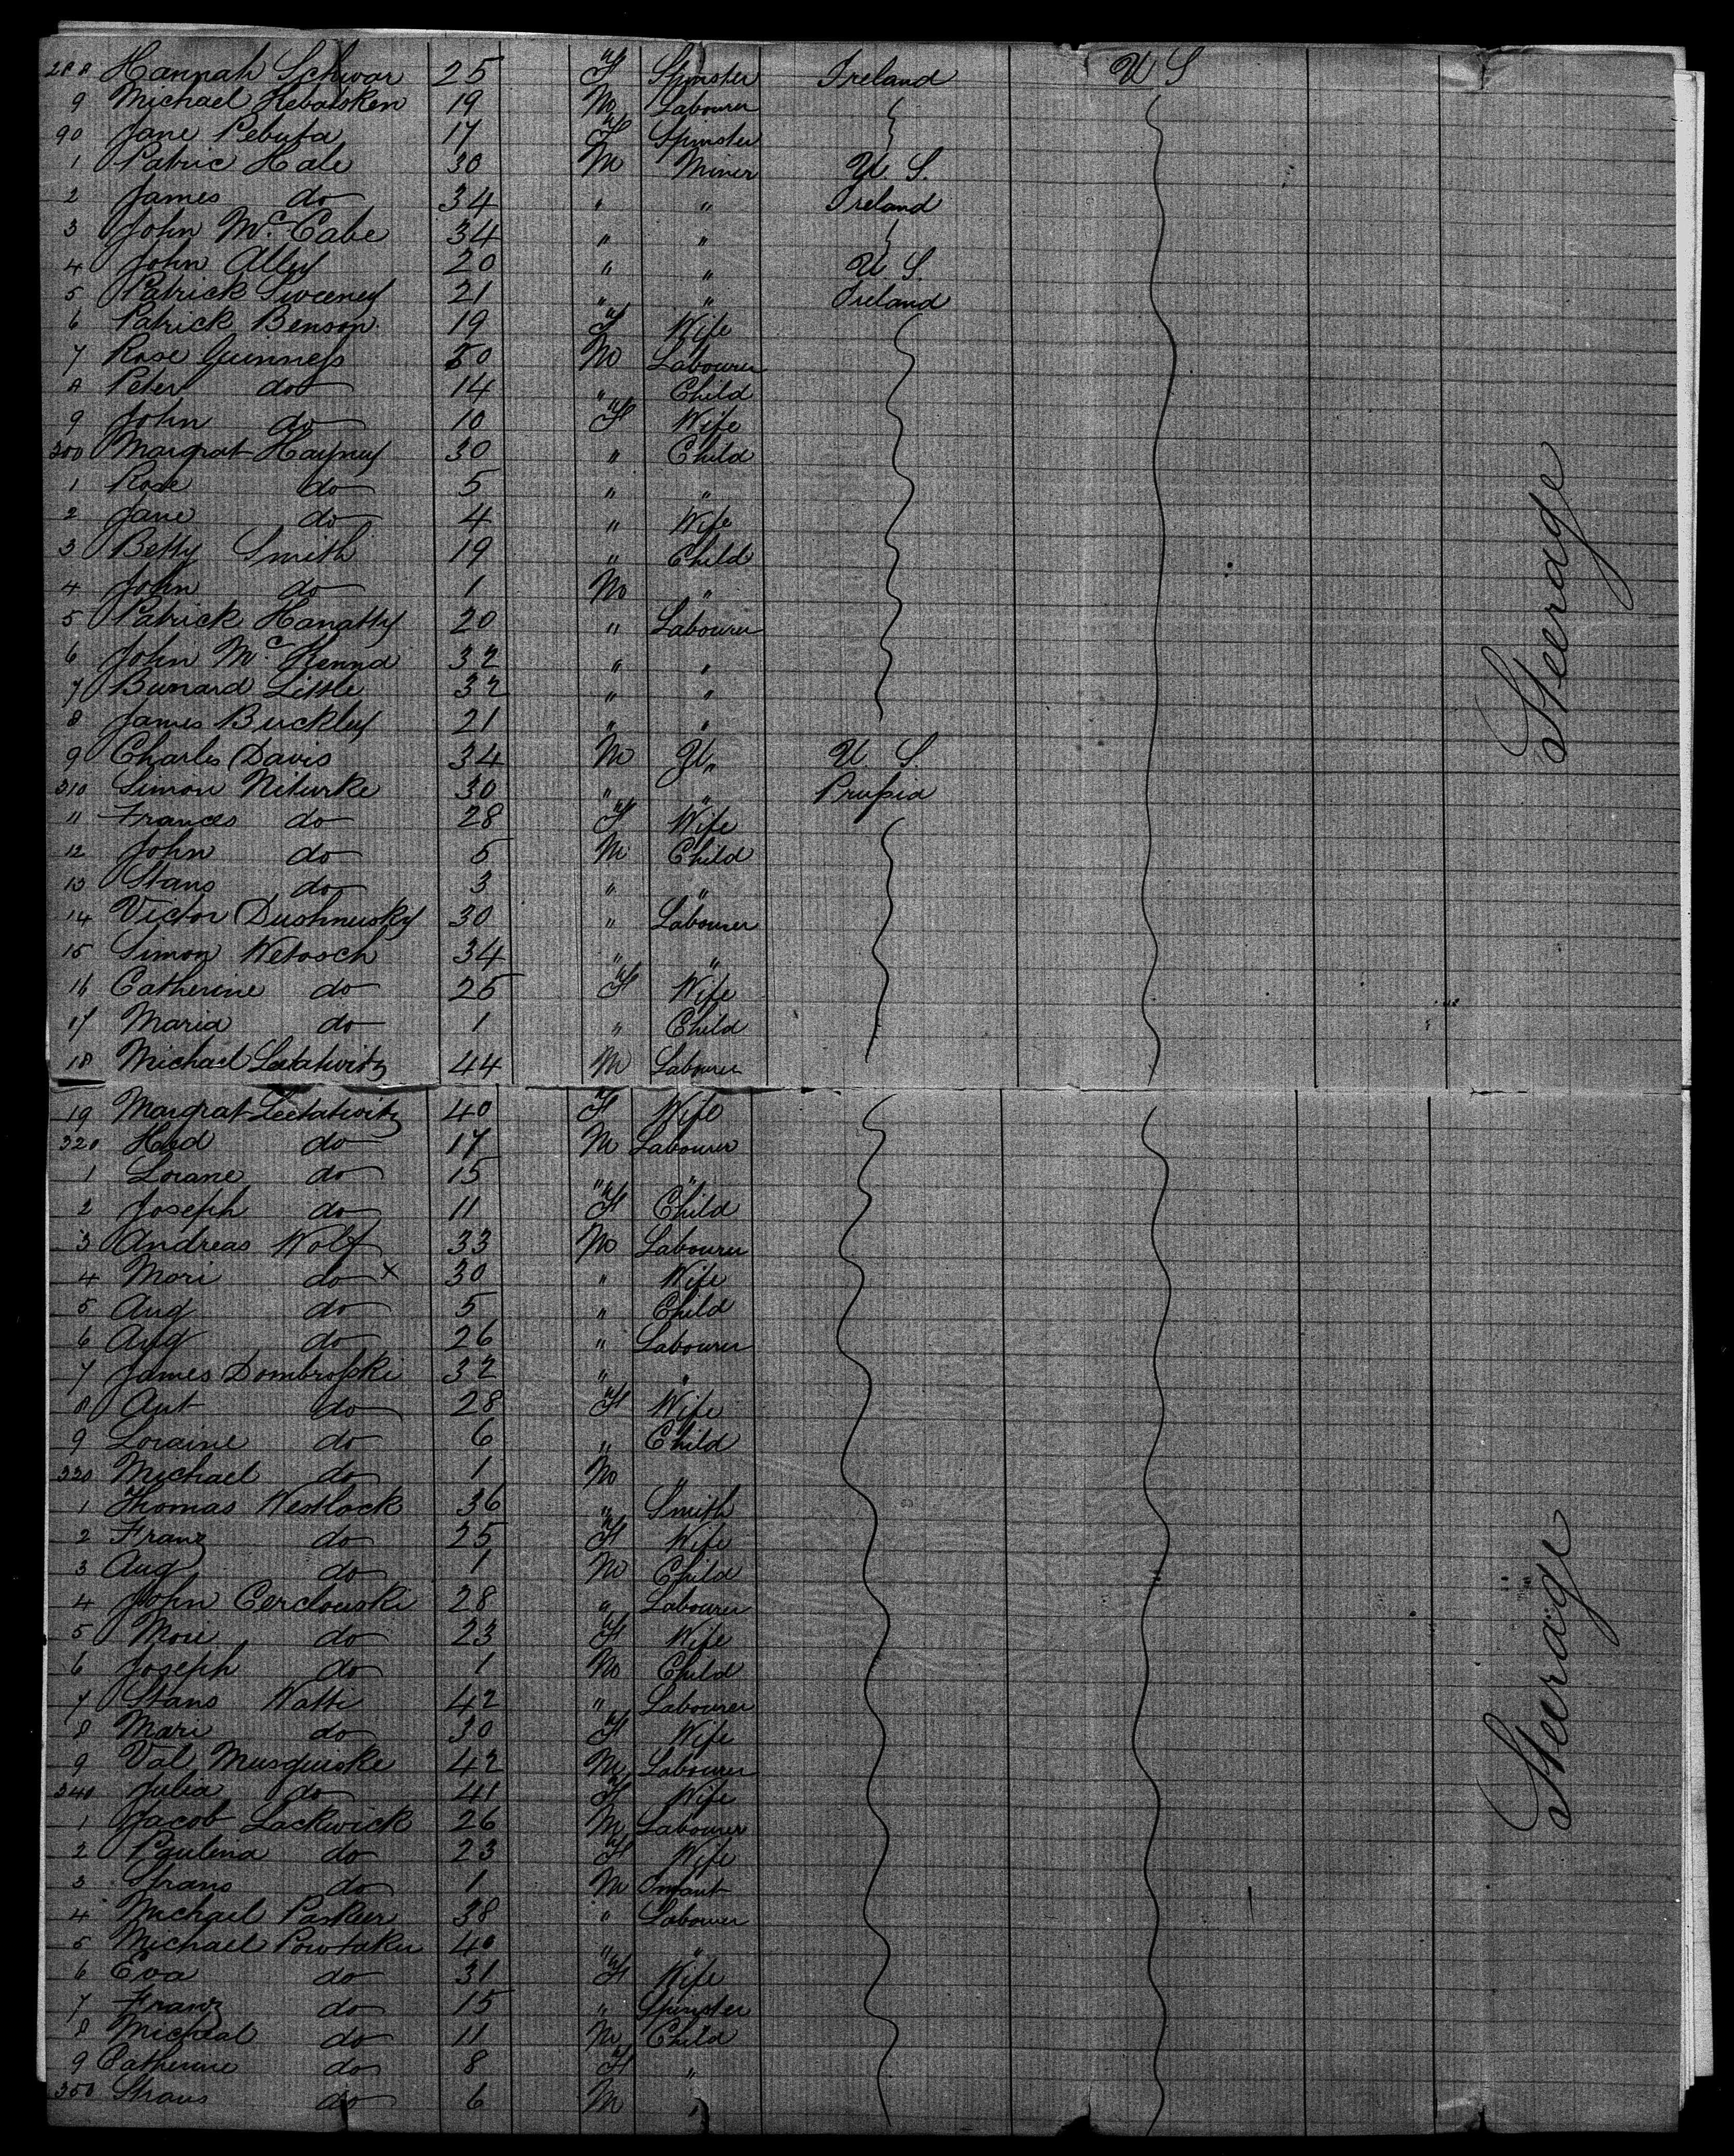 288 Hannah Schwar 25 F Spinster Ireland U S
9 Michael Hebatsken 19 M Labourer
90 Jane Pebuta 17 F Spinster
1 Patric Hale 30 M Miner U. S.
2 James do 34 " " Ireland
3 John Mc Cabe 34 " "
4 John Alley 20 " " U. S.
5 Patrick Sweeney 21 " " Ireland
6 Patrick Benson 19 F Wife
7 Rose Guinness 50 M Labourer
8 Peter do 14 " Child
9 John do 10 F Wife
300 Margrat Hayney 30 " Child
1 Rose do 5 " "
2 Jane do 4 " Wife
3 Betty Smith 19 " Child
4 John do 1 M "
5 Patrick Hanatty 20 " Labourer
6 John Mc Kenna 32 " "
7 Bunard Little 32 " "
8 James Buckley 21 " "
9 Charles Davis 34 M " U S
310 Simon Niturke 30 " " Prussia
11 Frances do 28 F Wife
12 John do 5 M Child
13 Stans do 3 " "
14 Victor Dushnusky 30 " Labourer
15 Simon Wetosch 34 " "
16 Catherine do 25 F Wife
17 Maria do 1 " Child
18 Michael Leetatwitz 44 M Labourer
19 Margrat Leetatwitz 40 F Wife
320 do 17 M Labourer
1 Lorane do 15 " "
2 Joseph do 11 F Child
3 Andreas Wolf 33 M Labourer
4 Mari do x 30 " Wife
5 Aug do 5 " Child
6 Aug do 26 " Labourer
7 James Dombrosski 32 " "
8 Ant do 28 F Wife
9 Loraine do 6 " Child
330 Michael do 1 M "
1 Thomas Westlock 36 " Smith
2 Franz do 25 F Wife
3 Aug do 1 M Child
4 John Cerclouski 28 " Labourer
5 Mori do 23 F Wife
6 Joseph do 1 M Child
7 Stans Watti 42 " Labourer
8 Mari do 30 F Wife
9 Val Musquiske 42 M Labourer
340 Julia do 41 F Wife
1 Jacob Lackwick 26 M Labourer
2 Paulina do 23 F Wife
3 Strans do 1 M Infant
4 Michael Paskur 38 " Labourer
5 Michael Powtaku 40 " "
6 Eva do 31 F Wife
7 Franz do 15 " Spinster
8 Micheal do 11 M Child
9 Catherine do 8 F "
350 Straus do 6 M "
Steerage
Steerage